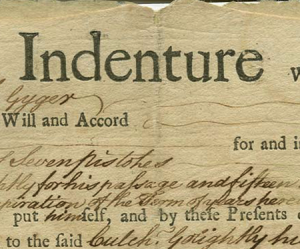 Indenture W
Gyger
Will and Accord
for and i
Seven pistoles
for his passage and fifteen
piration of the Term of years here
put himself, and by these Presents
to the said